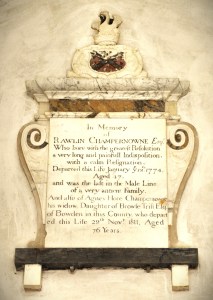 In Memory
of
RAWLIN CHAMPERNOWNE Esqr.
Who bore with the greatest Resolution
a very long and painfull Indisposition
with a calm Resignation.
Departed this Life January 1772,
Aged 47,
and was the last in the Male Line
of a very antient Family.
And also of Agnes Hore Champernowne
his widow, Daughter of Browle Trist Esq
of Bowden in this County, who depart
ed this Life 29th Novr. 1811, Aged
76 Years.